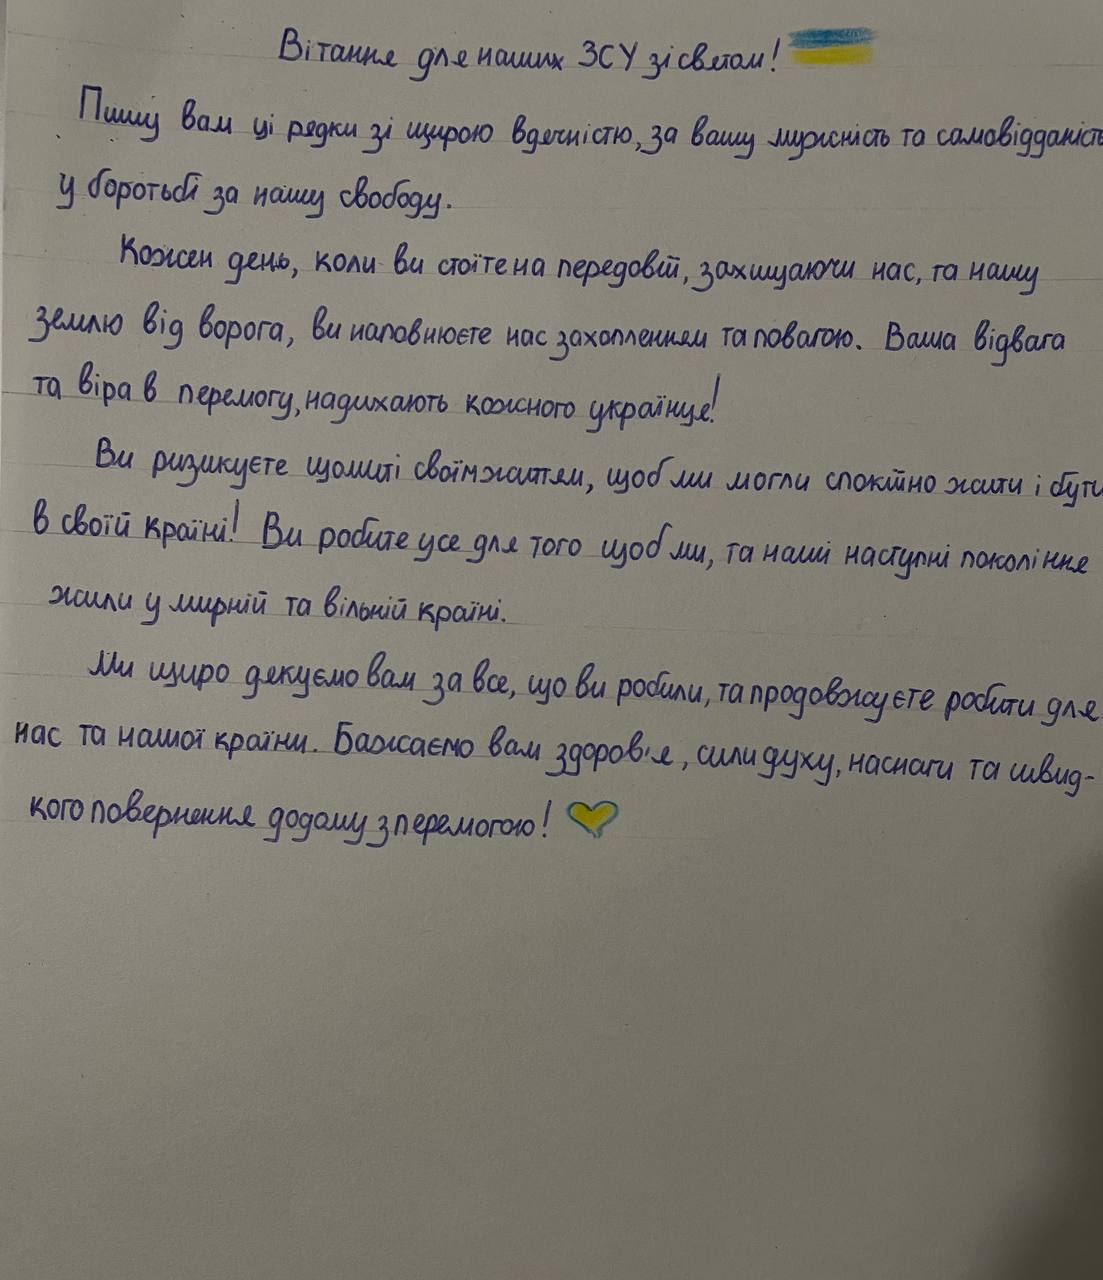 Вітання для наших ЗСУ зі святом!
Пишу вам ці рядки зі щирою вдячністю, за вашу мужність та самовідданість
у боротьбі за нашу свободу.
Кожен день, коли ви стоїте на передовій, захищаючи нас, та нашу
землю від ворога, ви наповнюєте нас захопленням та повагою. Ваша відвага
та віра в перемогу, надихають кожного українця!
Ви ризикуєте щомиті своїм життям, щоб ми могли спокійно жити і бути
в своїй країні! Ви робите усе для того щоб ми, та наші наступні покоління
жили у мирній та вільній країні.
Ми щиро дякуємо вам за все, що ви робили, та продовжуєте робити для
нас та нашої країни. Бажаємо вам здоров'я, сили духу, наснаги та швид-
кого повернення додому з перемогою!